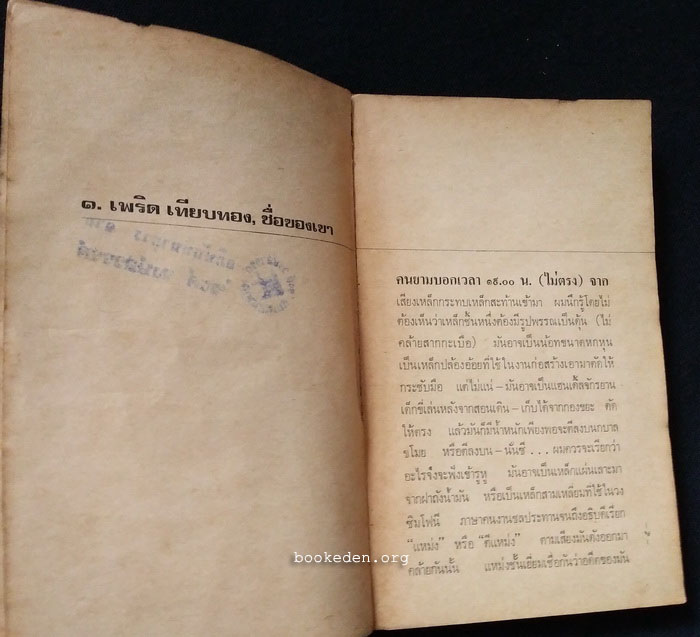 ๑. เพริด เทียบทอง, ชื่อของเขา
คนยามบอกเวลา ๑๙.๐๐ น. (ไม่ตรง) จาก
เสียงเหล็กกระทบเหล็กสะท้านเข้ามา ผมนึกรู้โดยไม่
ต้องเห็นว่าเหล็กชิ้นหนึ่งต้องมีรูปพรรณเป็นตุ้น (ไม่
คล้ายสากกะเบือ) มันอาจเป็นน้อทขนาดหกหุน
เป็นเหล็กปล้องอ้อยที่ใช้ในงานก่อสร้างเอามาดัดให้
กระชับมือ แต่ไม่แน่–มันอาจเป็นแฮนเดิ้ลจักรยาน
เด็กขี่เล่นหลังจากสอนเดิน–เก็บได้จากกองขยะ ดัด
ให้ตรง แล้วมันก็มีน้ำหนักเพียงพอจะตีลงบนกบาล
ขโมย หรือตีลงบน–นั่นซี ... ผมควรจะเรียกว่า
อะไรจึงจะฟังเข้ารูหู มันอาจเป็นเหล็กแผ่นเลาะมา
จากฝาถังน้ำมัน หรือเป็นเหล็กสามเหลี่ยมที่ใช้ในวง
ซิมโฟนี ภาษาคนงานชลประทานจนถึงอธิบดีเรียก
“แหม่ง” หรือ “ตีแหม่ง” ตามเสียงมันดังออกมา
คล้ายกันนั้น แหม่งชั้นเยี่ยมเชื่อกันว่าอดีตของมัน
bookeden.org